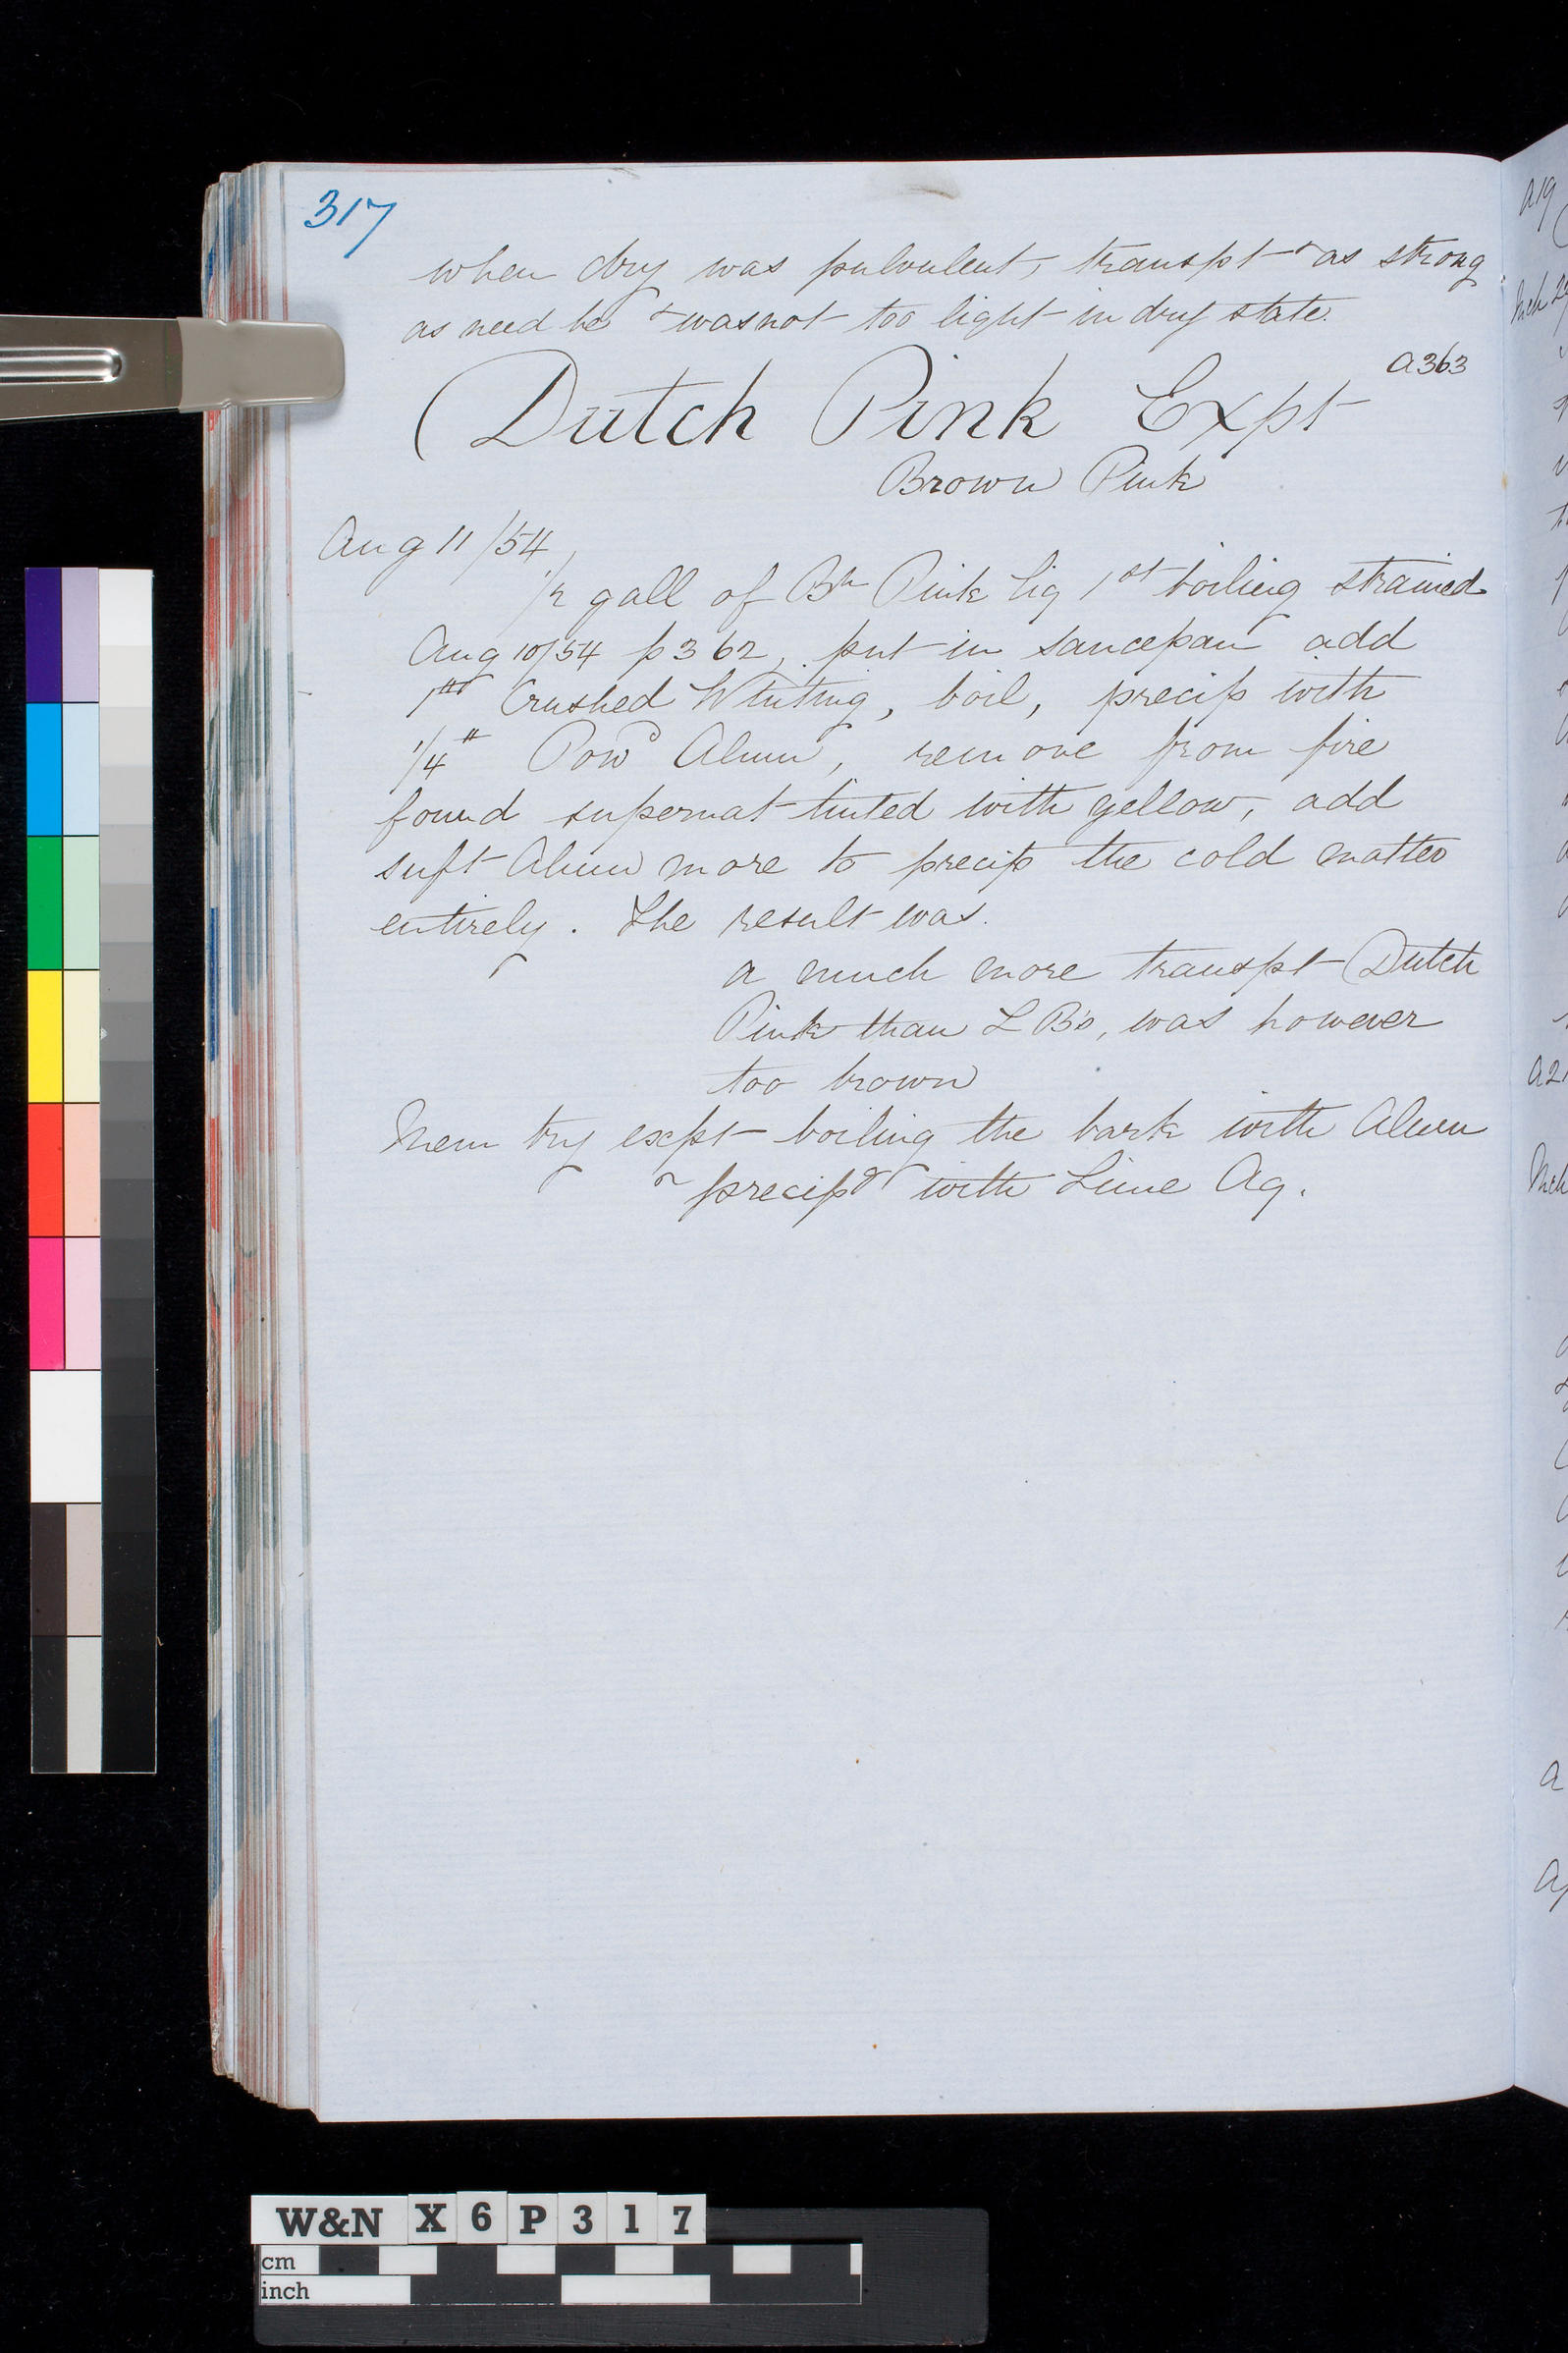 317
when dry was pulvulent, transpt & as strong
as need be & was not too light in dry state.
A363
Dutch Pink Expt
Brown Pink
Aug 11/54,
1/2 gall of Bn Pink liq 1st boiling strained
Aug 10/54 p362, put in saucepan add
1# Crushed Whiting, boil, precip with
1/4# Powd Alum, remove from fire
found supernat tinted with yellow, add
suft Alum more to precip the cold matter
entirely. The result was.
a much more transpt Dutch
Pink than L B's, was however
too brown
Mem try expt boiling the bark with Alum
& precipg with Lime Aq.
A19
Mch
A21
Mch
a
W&N X6P317
cm
inch